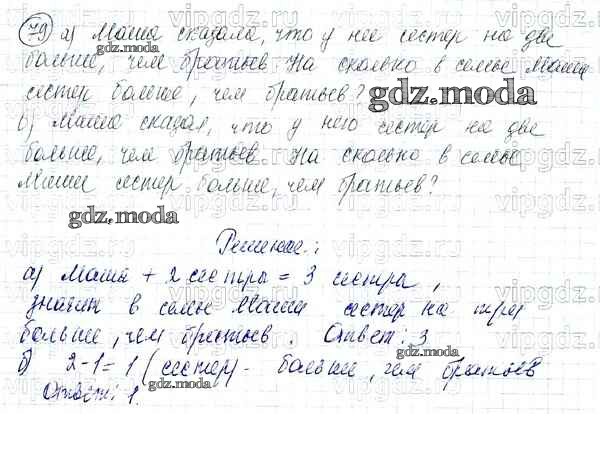 79) а) Маша сказала, что у нее сестер на две
больше, чем братьев. На сколько в семье Маши
сестер больше, чем братьев?
б) Миша сказал, что у него сестер на две
больше, чем братьев. На сколько в семье
Миши сестер больше, чем братьев?
Решение:
а) Маша + 2 сестры = 3 сестры,
значит в семье Маши сестер на три
больше, чем братьев. Ответ: 3
б) 2-1=1 (сестер) - больше, чем братьев
Ответ: 1.
gdz.moda
gdz.moda
gdz.moda
gdz.moda
gdz.moda
vipgdz.com